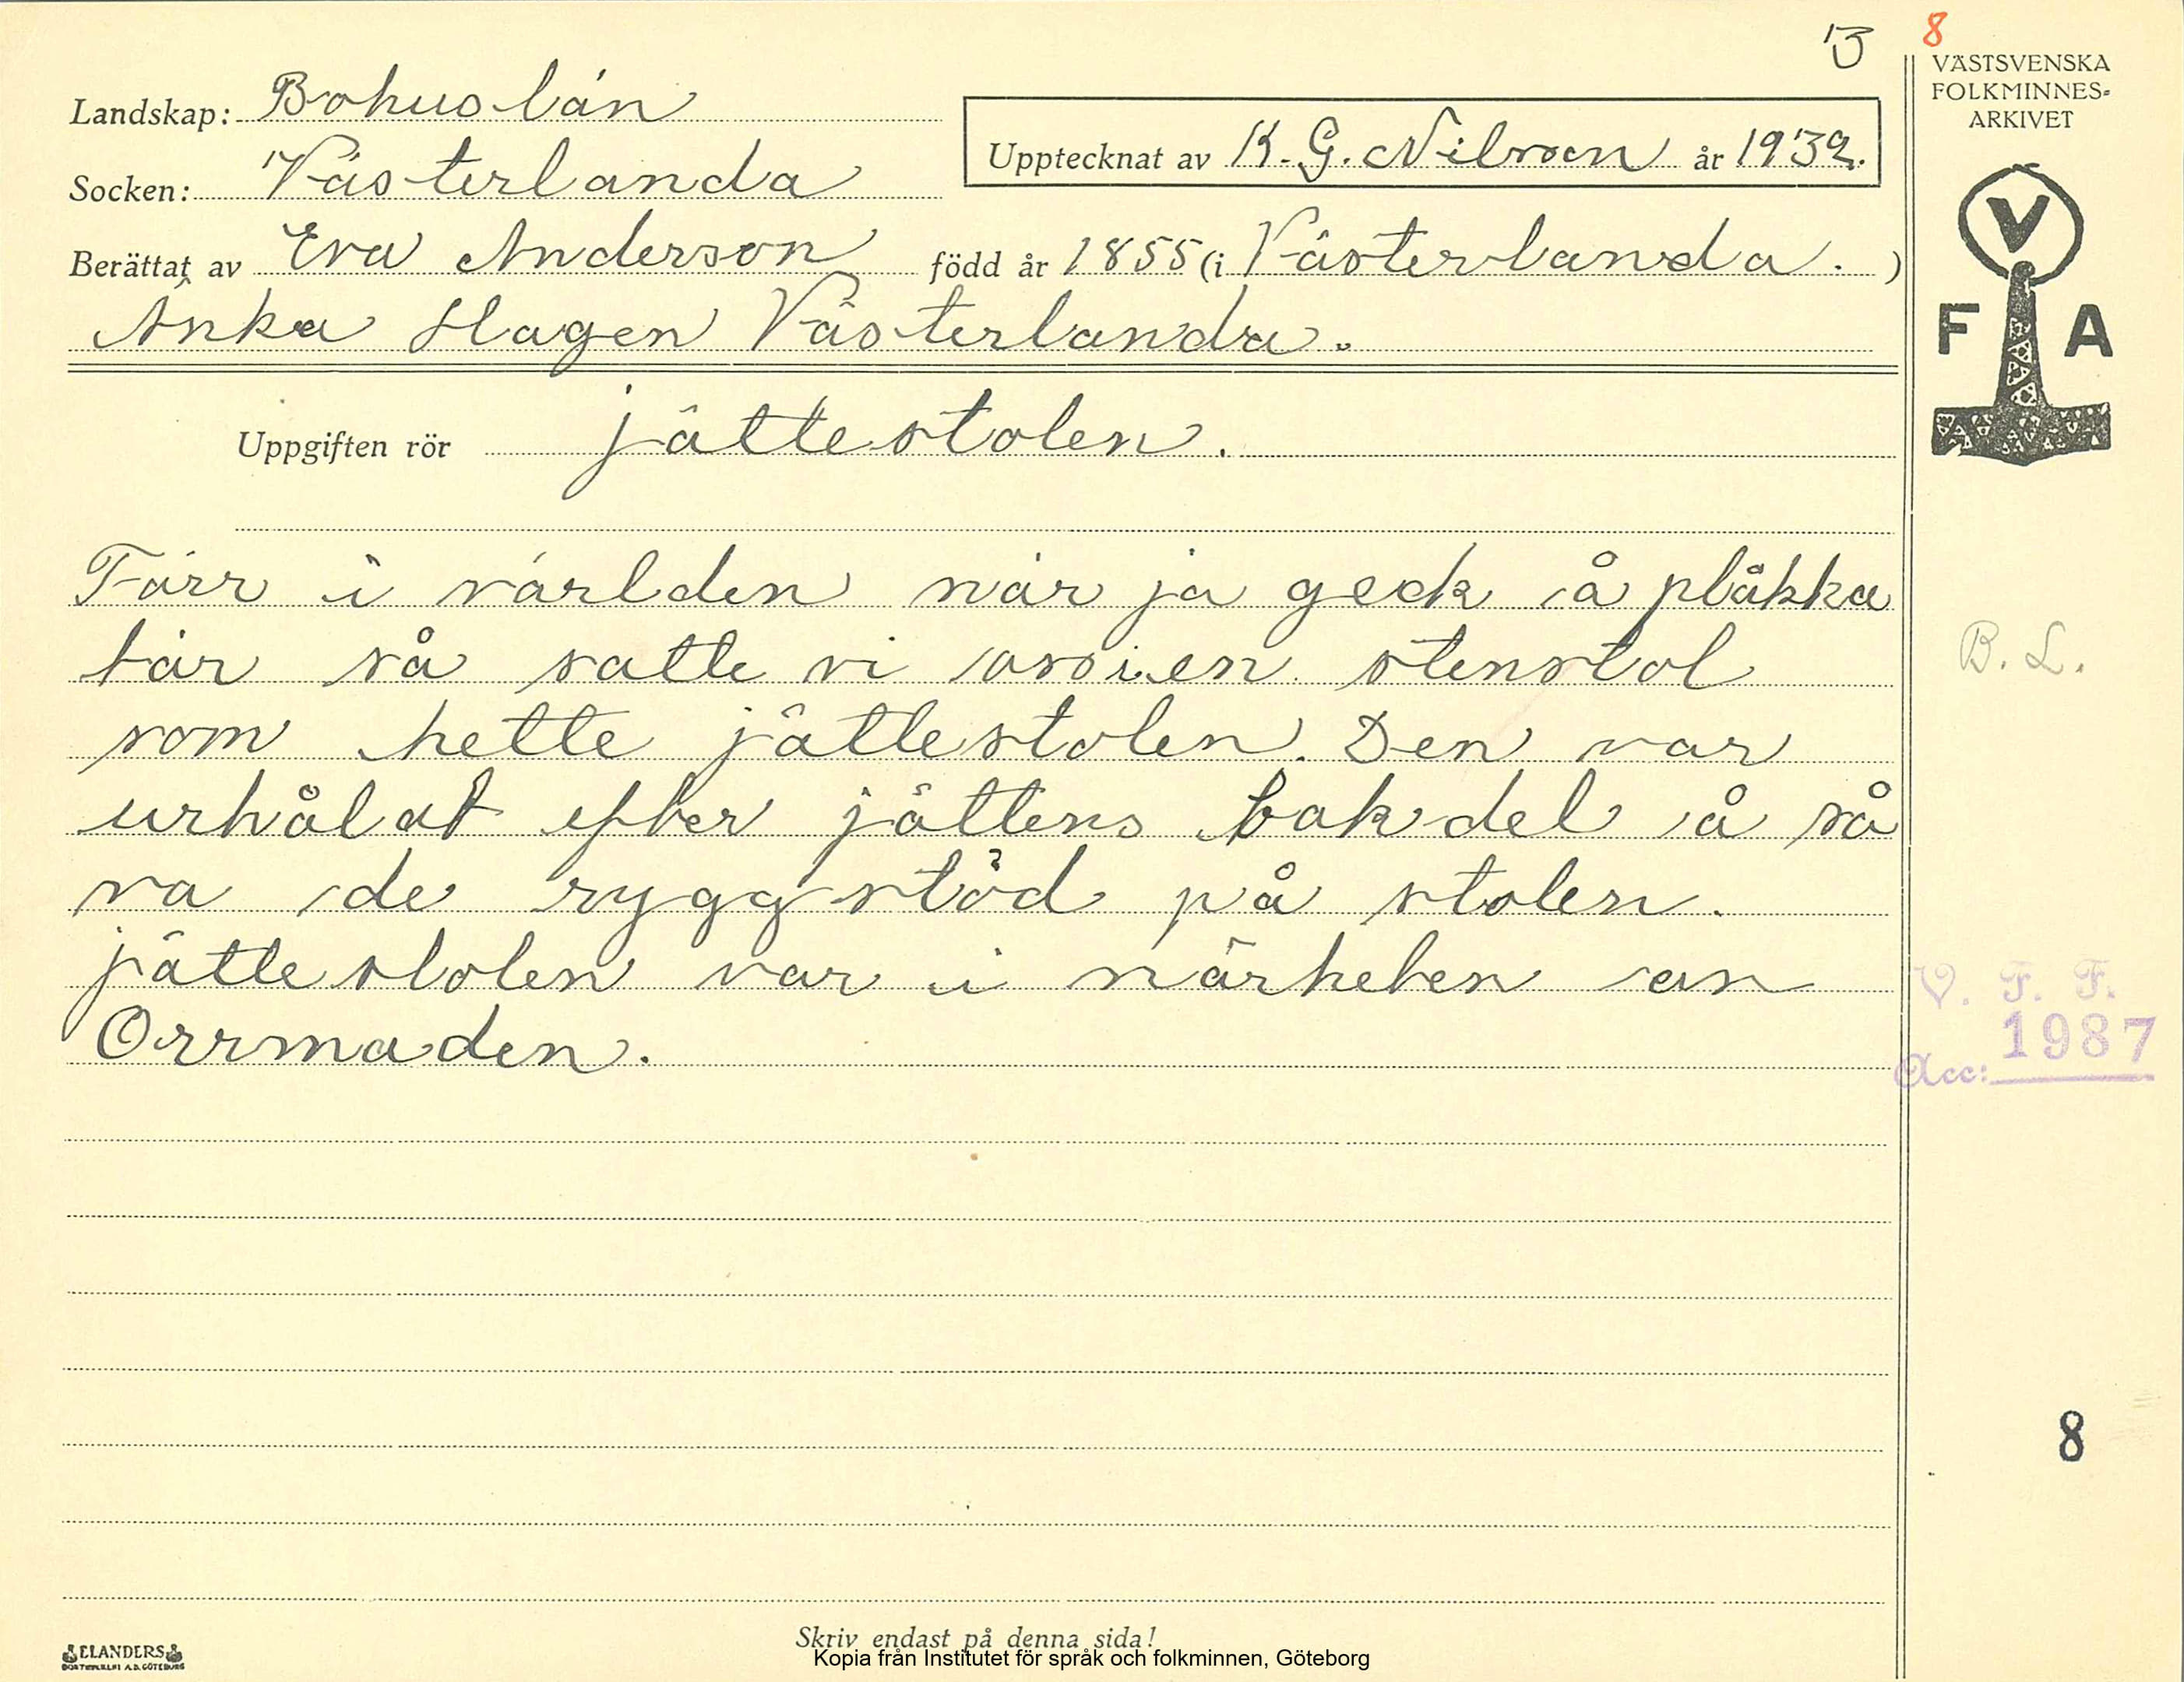 13 8
VÄSTSVENSKA
FOLKMINNES-
ARKIVET
Landskap: Bohuslän
Upptecknat av K. G. Nilsson år 1932.
Socken: Västerlanda
Berättat av Eva Anderson född år 1855 (i Västerlanda. )
Änka Hagen Västerlanda.
V
F A
Uppgiften rör jättestolen.
Förr i världen när ja geck å plåkka
bär så satte vi oss i en stenstol
B. L.
som hette jättestolen. Den var
urhålat efter jättens bakdel å så
va de ryggstöd på stolen.
jättestolen var i närheten an
Orrmaden.
V. F. F.
Acc: 1987
8
ELANDERS
BOKTRYCKERI A.B. GÖTEBORG
Skriv endast på denna sida!
Kopia från Institutet för språk och folkminnen, Göteborg